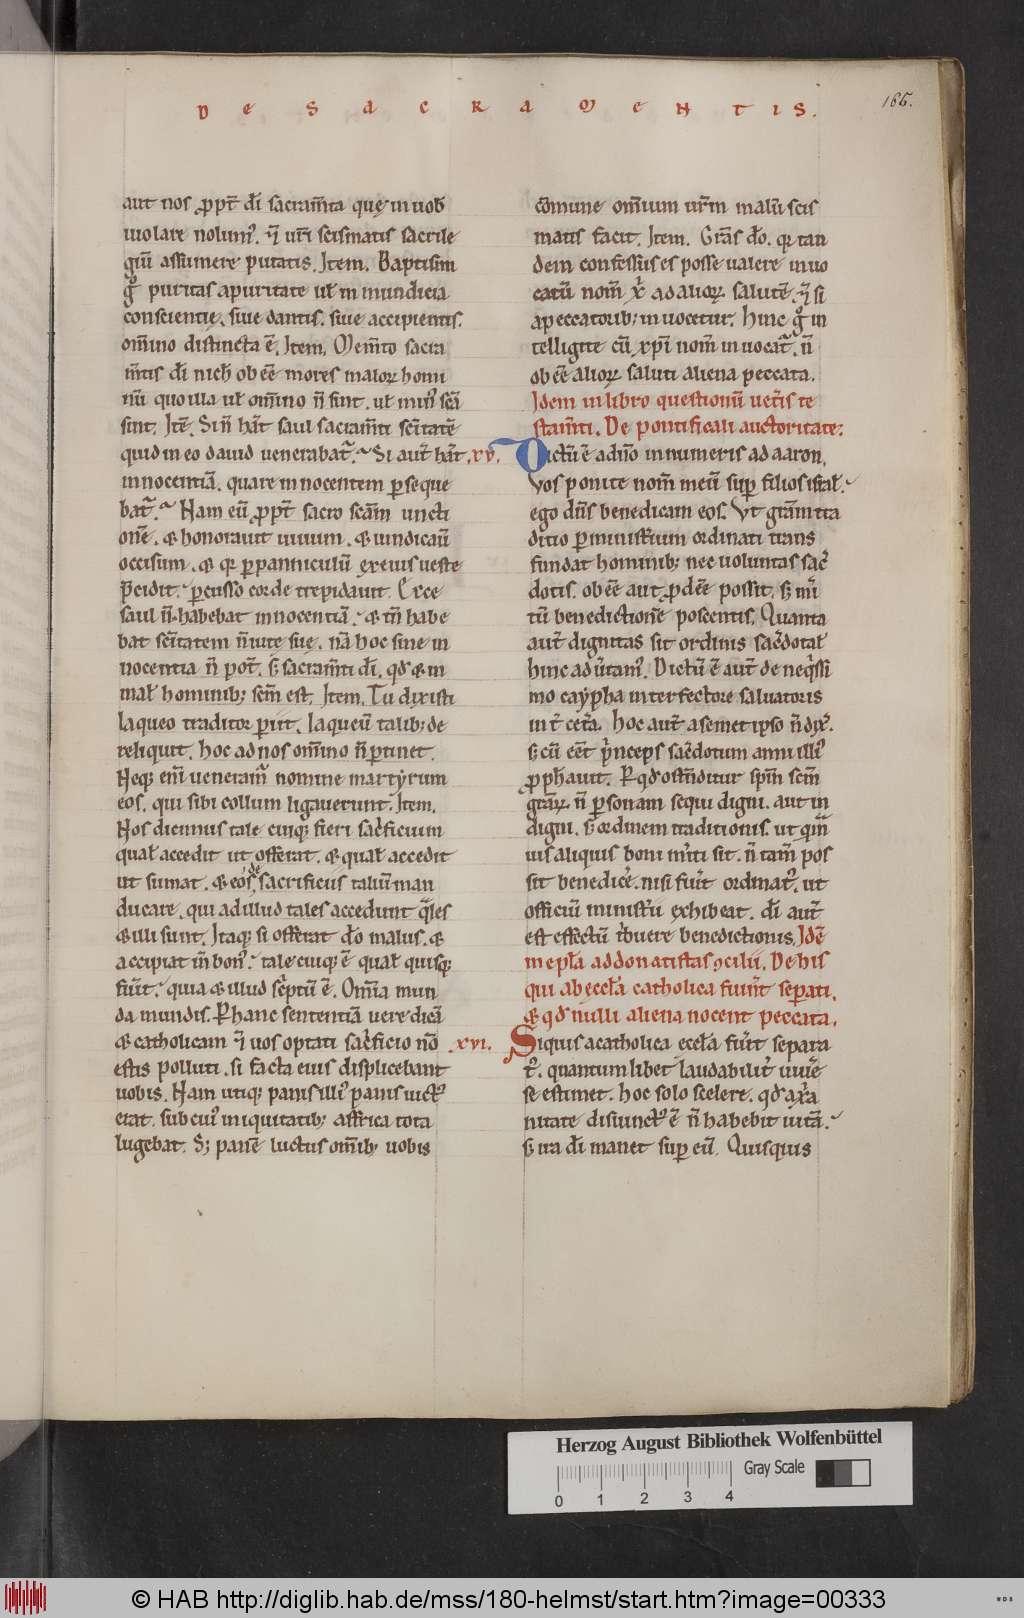 DE SACRAMENTIS.
186.
aut nos ꝓpt̄ dī sacram̄ta quę in uob̄
uiolare nolumꝰ. ⁊ ur̄i scismatis sacrile
giū assumere putatis. Item. Baptism
gͦ puritas a puritate ul̄ inmundicia
conscientię. siue dantis. siue accipientis.
om̄ino distincta ē. Item. Mem̄to sacra
m̄tis dī nich̄ obēe mores malorꝝ homi
nū quo illa ul̄ om̄ino n̄ sint. ul̄ minꝰ sc̄a
sint. Itē. Si n̄ hab̄t saul sacram̄ti sc̄itatē
quid in eo dauid uenerabat᷑. Si aut̄ hab̄t
innocentiā. quare innocentem ꝑseque
bat᷑. Nam eū ꝓpt̄ sacro sc̄am uncti
onē. & honorauit uiuum. & uindicauit
occisum. & qꝛ ꝑ panniculū ex eius ueste
p̄cidit. ꝑcusso corde trepidauit. Ecce
saul n̄ habebat innocentiā. & tm̄ habe
bat sc̄itatem n̄ uitę suę. nā hoc sine in
nocentia n̄ pot̄. s; sacram̄ti dī. qd̄ & in
mal̄ hominib; sc̄m est. Item. Tu dixisti
laqueo traditor ꝑiit. laqueū talib; de
reliquit. hoc ad nos om̄ino n̄ ꝑtinet.
Neqꝫ eni ueneram᷑ nomine martyrum
eos. qui sibi collum ligauerunt. Item.
Nos dicimus tale cuiqꝫ fieri sac̄ficium
qual̄ accedit ut offerat. & qual̄ accedit
ut sumat. & eos de sacrificiis talium man
ducare. qui ad illud tales accedunt q̄les
& illi sunt. Itaqꝫ si offerat dō malus. &
accipiat in̄ bonꝰ. tale cuiqꝫ ē qual̄ quisqꝫ
fuit̄. quia & illud sc̄ptū ē. Om̄ia mun
da mundis. Ꝑ hanc sententiā uere dicā
& catholicam ⁊ uos optati sac̄ficio nō
estis polluti. si facta eius displicebant
uobis. Nam utiqꝫ panis illiꝰ panis luctꝰ
erat. sub cuiꝰ iniquitatib; affrica tota
lugebat. S; panē luctus om̄ib; uobis
cōmune om̄ium ur̄m malū scis
matis facit. Item. Gr̄as dō. qꝛ tan
dem confessus es posse ualere inuo
catū nom̄ xp̄i ad aliorꝝ salutē ⁊ si
a peccatorib; inuocetur. Hinc gͦ in
telligite cū xp̄i nom̄ inuocat᷑. n̄
obēe aliorꝝ saluti aliena peccata.
Idem in libro questionū uet̄is te
stam̄ti. De pontificali auctoritate;
xv. Dictū ē a dn̄o in numeris ad aaron.
Vos ponite nom̄ meū suꝑ filios isrl̄.
ego dn̄s benedicam eos. Vt gr̄am tra
ditio ꝑ ministerium ordinati trans
fundat hominib; nec uoluntas sac̄
dotis. obēe aut ꝓdēe possit. s; m̄i
tū benedictionē poscentis. Quanta
aut̄ dignitas sit ordinis sac̄dotal̄
hinc aduertam᷑. Dictū ē aut̄ de neq̄ssi
mo caypha interfectore saluatoris
int̄ cet̄a. Hoc aut̄ a semet ipso n̄ dix̄.
s; cū eēt p̄nceps sac̄dotum anni illiꝰ
ꝓph̄auit. Ꝑ qd̄ ostenditur sp̄m sc̄m
gr̄arꝝ n̄ ꝑsonam sequi digni. aut in
digni. s; ordinem traditionis. ut q̄m
uis aliquis boni m̄iti sit. n̄ tam̄ pos
sit benedicē. nisi fuit̄ ordinatꝰ. ut
officiū minist̄ii exhibeat. dī aut̄
est effectū t̄buere benedictionis. Idē
in epl̄a ad donatistas ꝯcilii. De his
qui ab eccl̄a catholica fuint̄ seꝑati.
& qd̄ nulli aliena nocent peccata.
xvi. Siquis a catholica eccl̄a fuit̄ separa
tꝰ. quantumlibet laudabilit᷑ uiuēe
se estimet. hoc solo scelere. qd̄ a xp̄i
unitate disiunctꝰ ē n̄ habebit uitā.
s; ira dī manet suꝑ eū. Quisquis
Herzog August Bibliothek Wolfenbüttel
Gray Scale
0 1 2 3 4
© HAB http://diglib.hab.de/mss/180-helmst/start.htm?image=00333